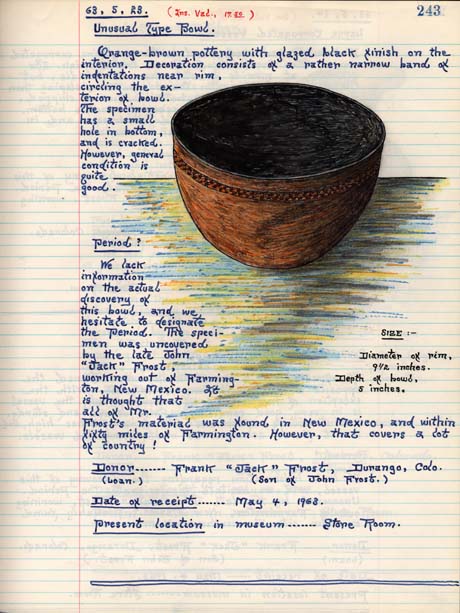 63. 5. 28. (Ins. Val., 17.50.) 243
Unusual Type Bowl.
Orange-brown pottery with glazed black finish on the
interior. Decoration consists of a rather narrow band of
indentations near rim,
circling the ex-
terior of bowl.
The specimen
has a small
hole in bottom,
and is cracked.
However, general
condition is
quite
good.
Period?
We lack
information
on the actual
discovery of
this bowl, and we
hesitate to designate
the period. The speci-
men was uncovered
by the late John
"Jack" Frost,
working out of Farming-
ton, New Mexico. It
is thought that
all of Mr.
Frost's material was found in New Mexico, and within
fifty miles of Farmington. However, that covers a lot
of country!
SIZE :-
Diameter of rim,
9 1/2 inches.
Depth of bowl,
5 inches.
Donor------- Frank "Jack" Frost, Durango, Colo.
(Loan.) (Son of John Frost.)
Date of receipt ------- May 4, 1963.
Present location in museum ------- Store Room.